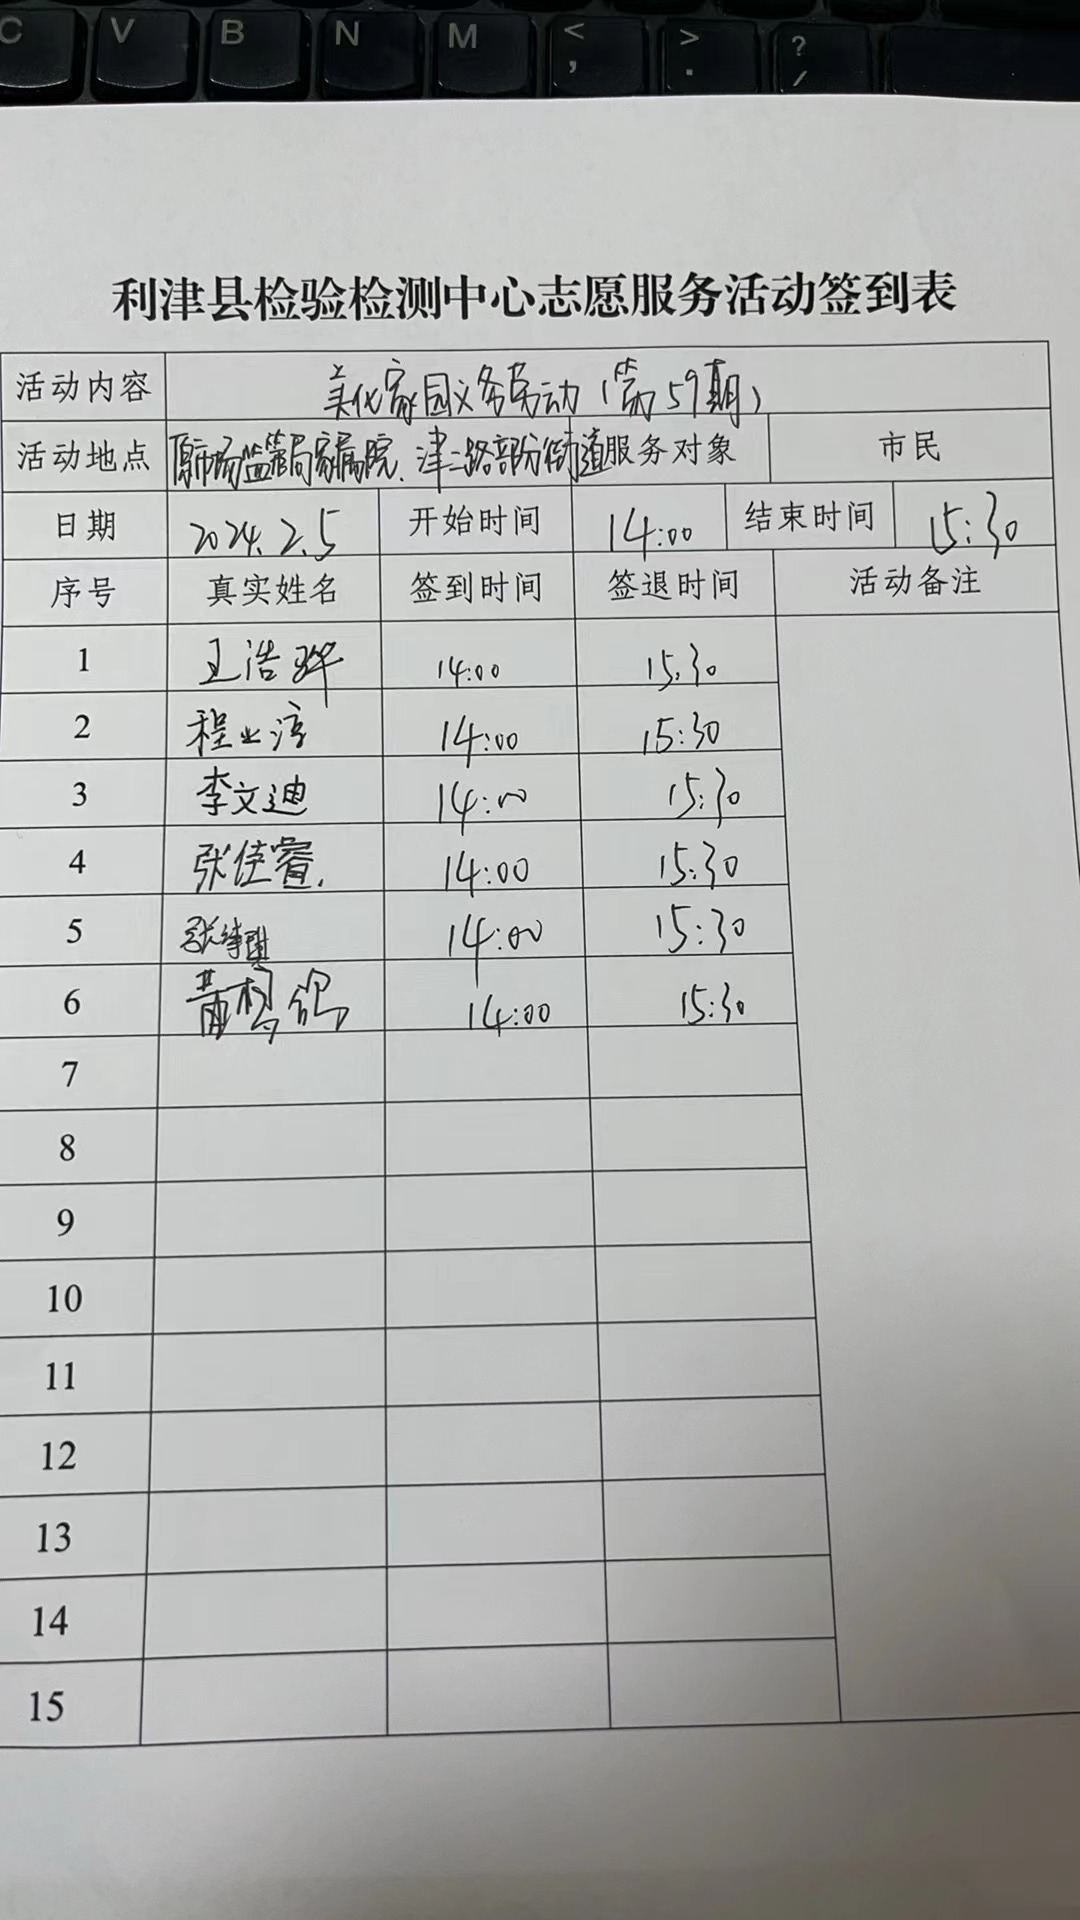 C V B N M < , > . ? /
利津县检验检测中心志愿服务活动签到表
活动内容 美化家园义务劳动（第59期）
活动地点 原市场监管局家属院、津二路部分街道 服务对象 市民
日期 2024.2.5 开始时间 14:00 结束时间 15:30
序号 真实姓名 签到时间 签退时间 活动备注
1 王浩骅 14:00 15:30
2 程业淳 14:00 15:30
3 李文迪 14:00 15:30
4 张佳睿 14:00 15:30
5 14:00 15:30
6 14:00 15:30
7
8
9
10
11
12
13
14
15